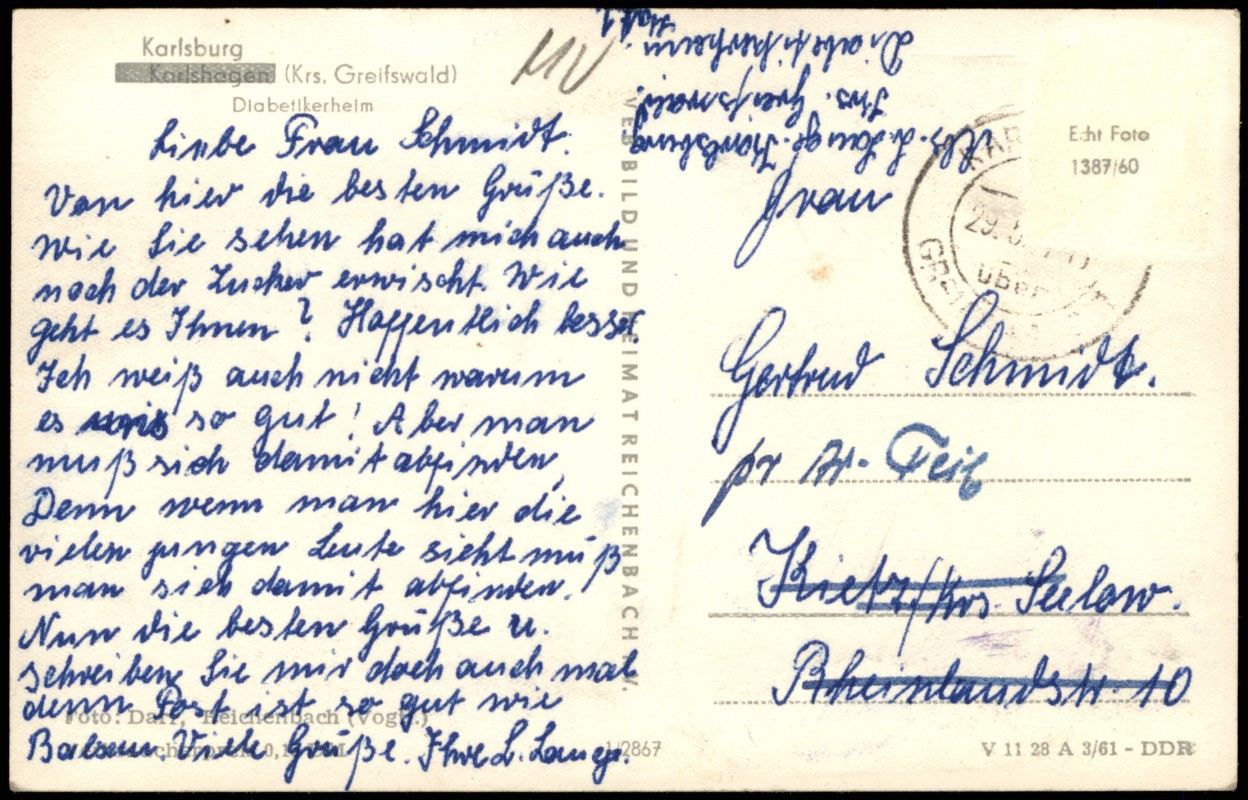 Karlsburg
Karlshagen (Krs. Greifswald)
Diabetikerheim
Liebe Frau Schmidt.
Von hier die besten Grüße.
Wie Sie sehen hat mich auch
noch der Zucker erwischt. Wie
geht es Ihnen? Hoffentlich besser
Ich weiß auch nicht warum
es so gut! Aber man
muß sich damit abfinden,
Denn wenn man hier die
vielen jungen Leute sieht muß
man sich damit abfinden.
Nun die besten Grüße u.
schreiben Sie mir doch auch mal
denn Post ist so gut wie
Balsam Viele Grüße. Ihre L. Lange.
Foto: Darr, Reichenbach (Vogtl.)
1/2867
VEB BILD UND HEIMAT REICHENBACH i. V.
Abs. L. Lange. Karlsburg
Krs. Greifswald.
Diabetikerheim.
Echt Foto
1387/60
29.
über
Frau
Gertrud Schmidt.
Kietz/Krs. Seelow.
Rheinlandstr. 10
V 11 28 A 3/61 - DDR